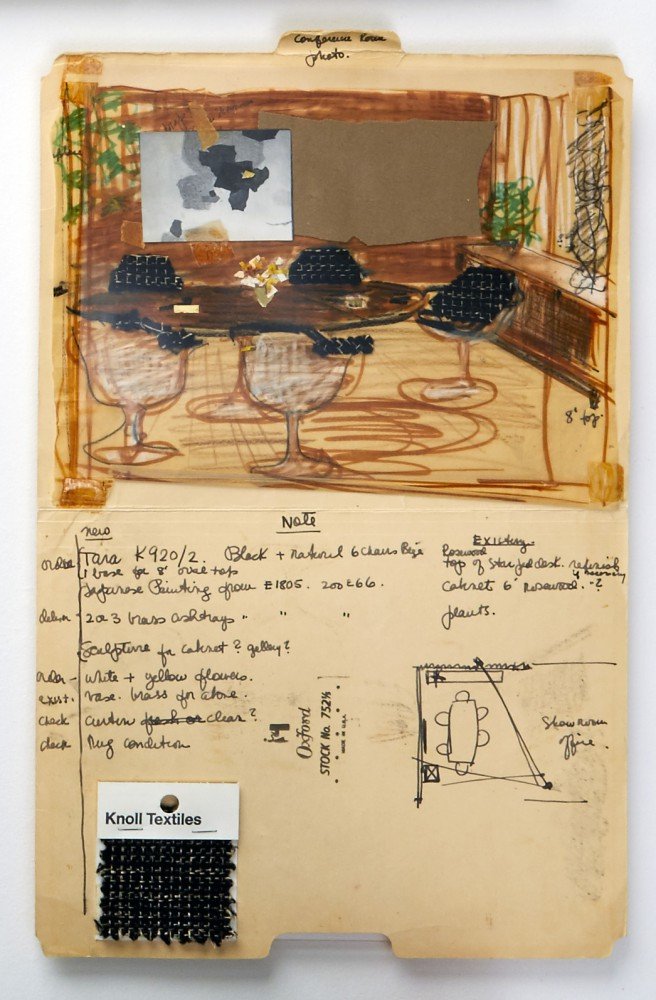 Conference Room
photo.
8' top.
Note
new
order Tara K920/2. Black + natural 6 chairs Beige
1 base for 8' oval top
Japanese Painting from E1805. 200 E66.
2 or 3 brass ashtrays " " "
Sculpture for cabinet? gallery?
order - white + yellow flowers.
exist. vase. brass for above.
check curtain fresh or clean?
check Rug condition
Existing.
Rosewood
top of Star jd desk. refinish
if necessary
Cabinet 6' Rosewood. "?
plants.
Showroom
office.
Oxford
STOCK No. 752 1/3
MADE IN U.S.A.
Knoll Textiles